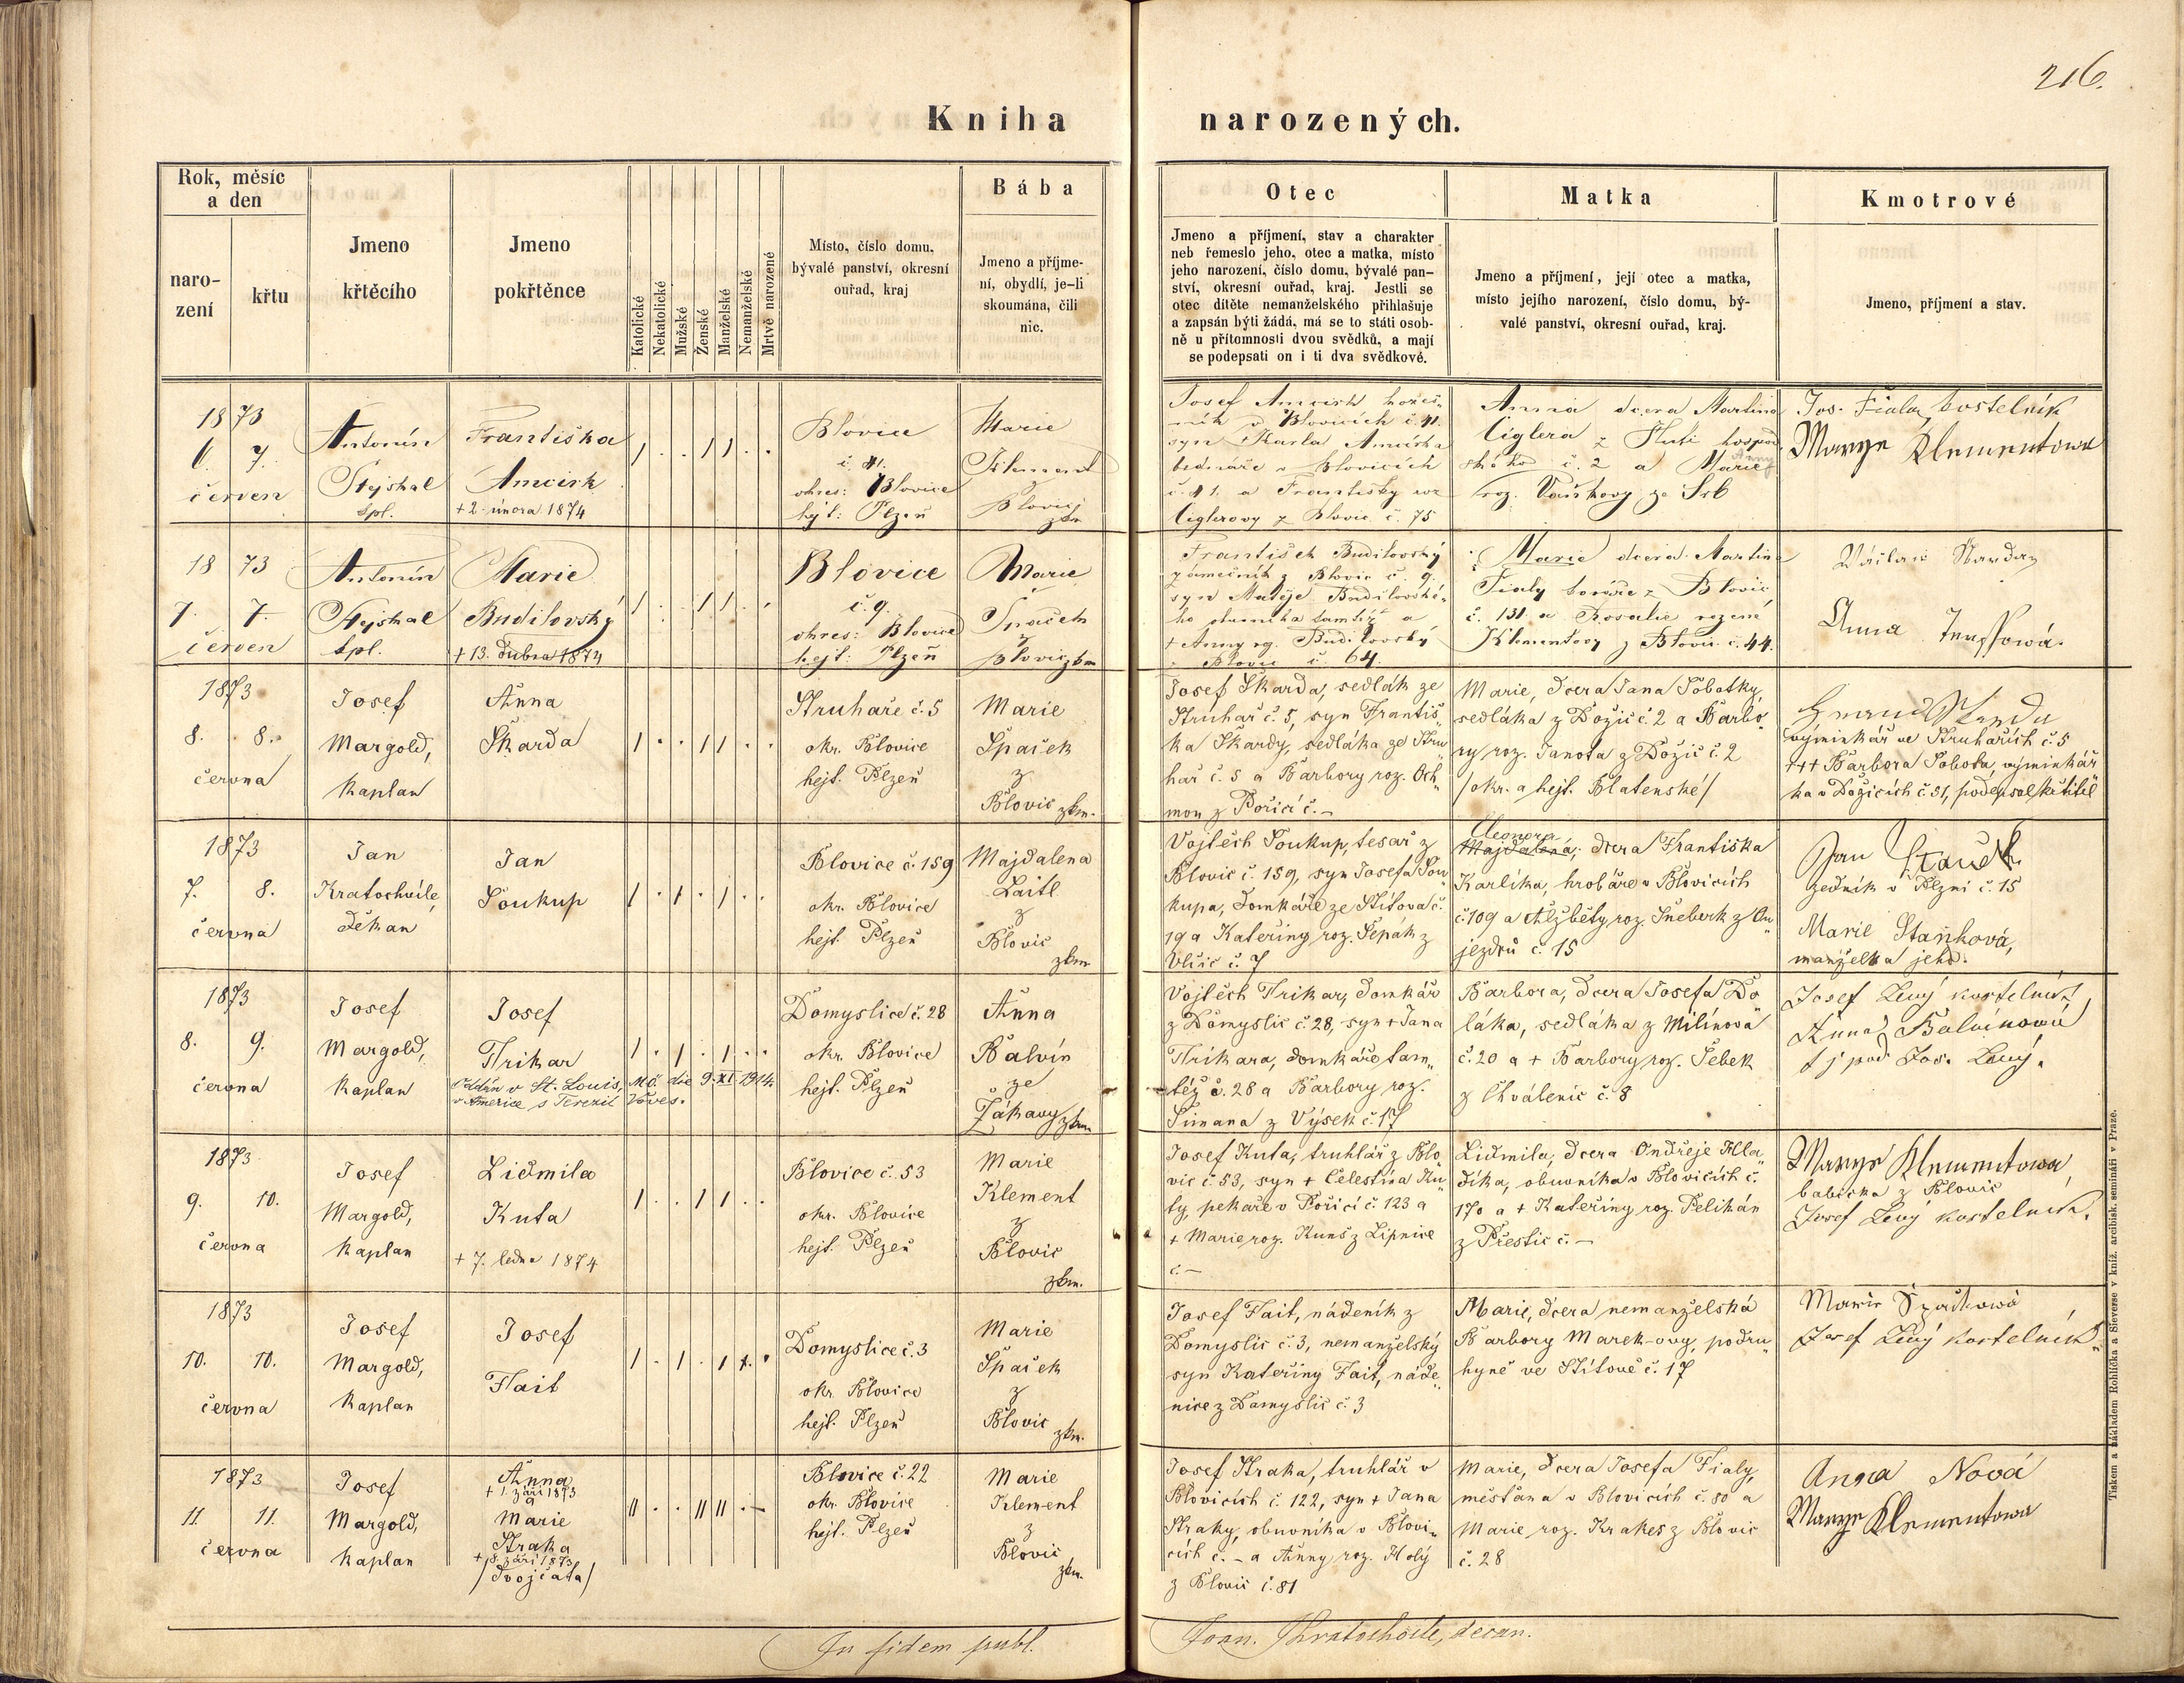 216.
Kniha narozených.
Rok, měsíc
a den
naro-
zení
křtu
Jmeno
křtěcího
Jmeno
pokřtěnce
Katolické
Nekatolické
Mužské
Ženské
Manželské
Nemanželské
Mrtvě narozené
Místo, číslo domu,
bývalé panství, okresní
ouřad, kraj
Bába
Jmeno a příjme-
ní, obydlí, je-li
skoumána, čili
nic.
Otec
Jmeno a příjmení, stav a charakter
neb řemeslo jeho, otec a matka, místo
jeho narození, číslo domu, bývalé pan-
ství, okresní ouřad, kraj. Jestli se
otec dítěte nemanželského přihlašuje
a zapsán býti žádá, má se to státi osob-
ně u přítomnosti dvou svědků, a mají
se podepsati on i ti dva svědkové.
Matka
Jmeno a příjmení, její otec a matka,
místo jejího narození, číslo domu, bý-
valé panství, okresní ouřad, kraj.
Kmotrové
Jmeno, příjmení a stav.
1873
6. 7.
červen
Antonín
Stejskal
kpl.
Františka
Amcirk
+ 2. února 1874
Blovice
č. 41.
okres: Blovice
hejt: Plzeň
Marie
Klement
Blovic
zkm
Josef Amcirk kožeš-
ník v Blovicích č. 41.
syn Karla Amcirka
bednáře v Blovicích
č. 41. a Františky roz
Ciglerovy z Blovic č. 75
Anna dcera Martina
Ciglera z Huti hospod
ského č. 2 a Marie
roz. Vaňkovy ze Srb
Jos. Fiala, kostelník
Marye Klementowa
1873
7. 7.
červen
Antonín
Stejskal
kpl.
Marie
Budilovský
+ 13. dubna 1874
Blovice
č. 9.
okres: Blovice
hejt: Plzeň
Marie
Špaček
z
Blovic zkm
František Budilovský
zámečník z Blovic č. 9.
syn Matěje Budilovské-
ho tamtéž a
+ Anny rz. Budilovský
z Blovic č. 64.
Marie dcera Martina
Fialy z Blovic
č. 131 a Rosalie rozené
Klementovy z Blovic č. 44.
Václav Škarda
Anna
1873
8. 8.
června
Josef
Margold,
kaplan
Anna
Škarda
Struhaře č. 5
okr. Blovice
hejt. Plzeň
Marie
Špaček
z
Blovic zkm.
Josef Škarda, sedlák ze
Struhař č. 5, syn Františ„
ka Škardy, sedláka ze Stru„
hař č. 5 a Barbory roz. Och„
mon z Poříčí č. –
Marie, dcera Jana Sobotky,
sedláka z Dožic č. 2 a Barbo„
ry roz. Janota z Dožic č. 2
/okr. a hejt. Blatenské/
výminkář ve Struhařích č. 5
+++ Barbora Sobota, výminkář
ka v Dožicích č. 51, podepsal křtitel
1873
7. 8.
června
Jan
Kratochvíle,
děkan
Jan
Soukup
Blovice č. 159
okr. Blovice
hejt. Plzeň
Majdalena
Laitl
z
Blovic
zkm
Vojtěch Soukup, tesař z
Blovic č. 159, syn Josefa Sou„
kupa, domkáře ze Štítova č.
19 a Kateřiny roz. Šepák z
Vlčic č. 7
Eleonora
Majdalena, dcera Františka
Karlíka, hrobáře v Blovicích
č. 109 a Alžběty roz. Šneberk z Ou„
jezdu č. 15
Jan Staněk
zedník v Plzni č. 15
Marie Staňková,
manželka jeho.
1873
8. 9.
června
Josef
Margold,
kaplan
Josef
Trikar
Oddán v St. Louis, Mo. die 9. XI 1914
v Americe s Terezií Voves.
Domyslice č. 28
okr. Blovice
hejt. Plzeň
Anna
Balvín
ze
Žákavy zkm
Vojtěch Trikar, domkář
z Domyslic č. 28, syn + Jana
Trikara, domkáře tam„
též č. 28 a Barbory roz.
Šimana z Výsek č. 17
Barbora, dcera Josefa Do
láka, sedláka z Milínova
č. 20 a + Barbory roz. Šebek
z Chválenic č. 8
Josef Levý kostelník
Anna Balvínová
tj pod Jos. Levý.
1873
9. 10.
června
Josef
Margold,
kaplan
Lidmila
Kuta
+ 7. ledna 1874
Blovice č. 53
okr. Blovice
hejt. Plzeň
Marie
Klement
z
Blovic
zkm.
Josef Kuta, truhlář z Blo
vic č. 53, syn + Celestina Ku„
ty, pekaře v Poříčí č. 123 a
+ Marie roz. Kunš z Lipnice
č. –
Lidmila, dcera Ondřeje Hla„
díka, obuvníka v Blovicích č.
170 a + Kateřiny roz. Pelikán
z Přestic č. –
Marye Klementowa
babicka z Blovic
Josef Levý kostelník.
1873
10. 10.
června
Josef
Margold,
kaplan
Josef
Fait
Domyslice č. 3
okr. Blovice
hejt. Plzeň
Marie
Špaček
z
Blovic
zkm.
Josef Fait, nádeník z
Domyslic č. 3, nemanželský
syn Kateřiny Fait, náde„
nice z Domyslic č. 3
Marie, dcera nemanželská
Barbory Marek-ovy, podru„
hyně ve Štítově č. 17
Marie Špačková
Josef Levý kostelník
1873
11. 11.
června
Josef
Margold,
kaplan
Anna
+ 1. září 1873
a
Marie
Straka
+ 8. září 1873
/dvojčata/
Blovice č. 22
okr. Blovice
hejt. Plzeň
Marie
Klement
z
Blovic
zkm.
Josef Straka, truhlář v
Blovicích č. 122, syn + Jana
Straky, obuvníka v Blovi„
cích č. – a Anny roz. Holý
z Blovic č. 81
Marie, dcera Josefa Fialy,
měsťana v Blovicích č. 80 a
Marie roz. Krakes z Blovic
č. 28
Anna Nová
Marye Klementowa
In fidem publ. Joan. Kratochvile, decan.
Tiskem a nákladem Rohlíčka a Sieverse v kníž. arcibisk. semináři v Praze.